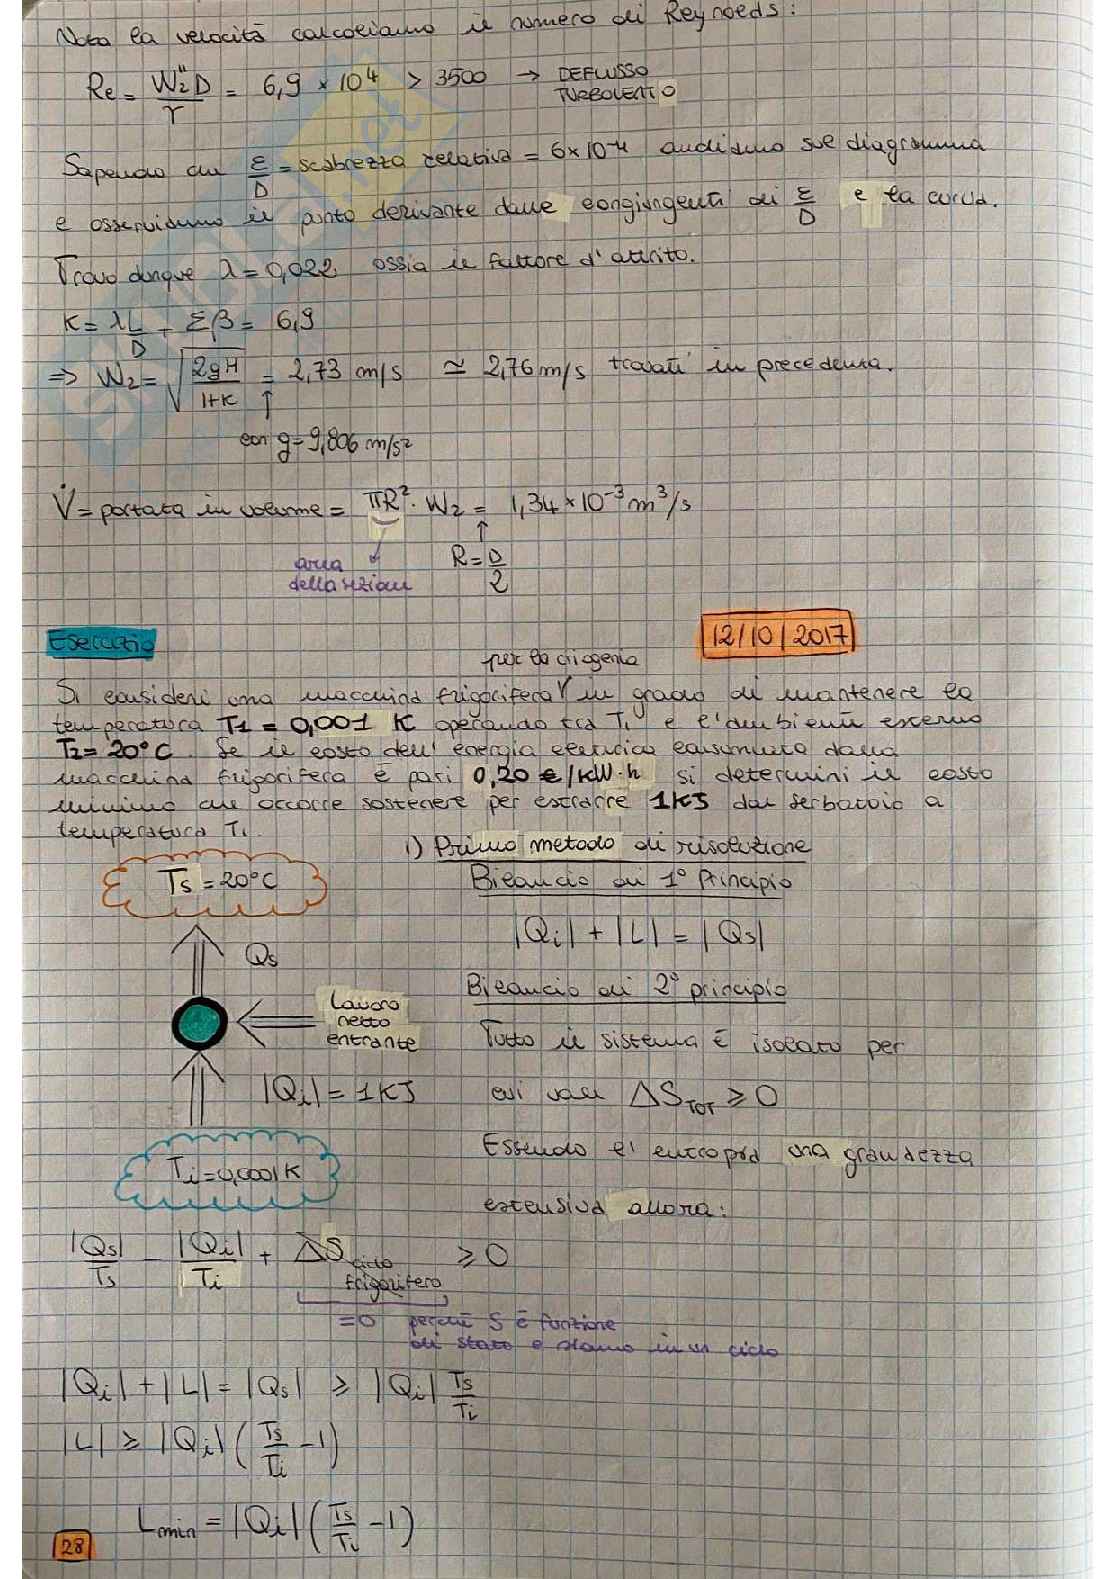 Nota la velocità calcoliamo il numero di Reynolds:
Re = W₂"D / γ = 6,9 × 10⁴ > 3500 → DEFLUSSO TURBOLENTO
Sapendo che ε/D = scabrezza relativa = 6×10⁻⁴ andiamo sul diagramma
e osserviamo il punto derivante dalle congiungenti di ε/D e la curva.
Trovo dunque λ = 0,022, ossia il fattore d'attrito.
K = λL/D + Σβ = 6,9
⇒ W₂ = √(2gH / 1+K) = 2,73 m/s ≃ 2,76 m/s trovati in precedenza.
con g = 9,806 m/s²
V̇ = portata in volume = πR² · W₂ = 1,34 × 10⁻³ m³/s
area della sezione
R = D/2
Esercizio
12/10/2017
per la criogenia
Si consideri una macchina frigorifera in grado di mantenere la
temperatura T1 = 0,001 K operando tra T₁ e l'ambiente esterno
T2 = 20°C. Se il costo dell'energia elettrica consumata dalla
macchina frigorifera è pari 0,20 €/kW·h si determini il costo
minimo che occorre sostenere per estrarre 1KJ dal serbatoio a
temperatura T₁.
1) Primo metodo di risoluzione
Ts = 20°C
Bilancio di 1° Principio
|Qi| + |L| = |Qs|
Qs
Bilancio di 2° principio
Lavoro
netto
entrante
Tutto il sistema è isolato per
|Qi| = 1KJ
cui vale ΔS_TOT ≥ 0
Essendo l'entropia una grandezza
Ti = 0,0001K
estensiva allora:
|Qs|/Ts - |Qi|/Ti + ΔS ciclo frigorifero ≥ 0
=0 perché S è funzione
di stato e siamo in un ciclo
|Qi| + |L| = |Qs| ≥ |Qi| Ts/Ti
|L| ≥ |Qi| (Ts/Ti - 1)
Lmin = |Qi| (Ts/Ti - 1)
28